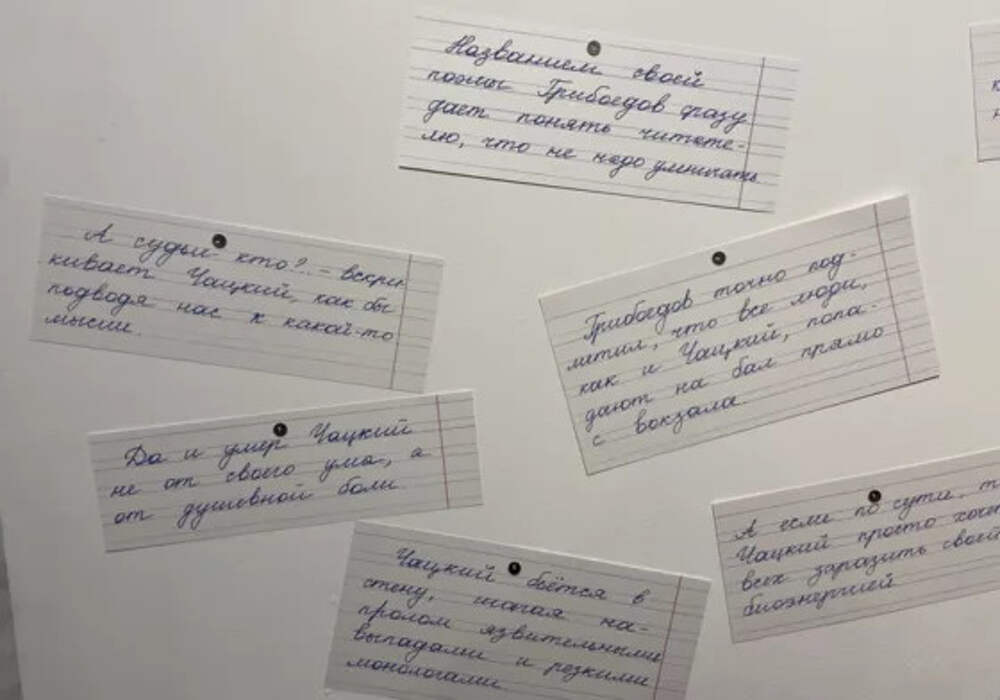 Названием своей
поэмы Грибоедов сразу
дает понять читате-
лю, что не надо умничать
А судьи кто? - вскри-
кивает Чацкий, как бы
подводя нас к какой-то
мысли.
Грибоедов точно под-
метил, что все люди,
как и Чацкий, попа-
дают на бал прямо
с вокзала.
Да и умер Чацкий
не от своего ума, а
от душевной боли.
А если по сути, т
Чацкий просто хоч
всех заразить своей
биоэнергией
Чацкий бьётся в
стену, шагая на-
пролом язвительными
выпадами и резкими
монологами.